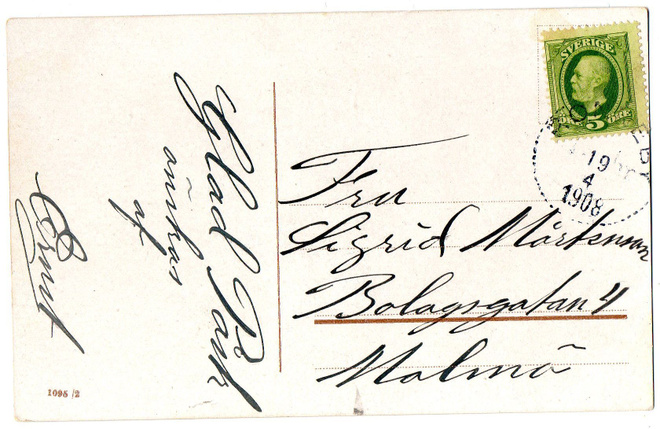 Glad Påsk
önskas
af
Ernst
SVERIGE
5 ÖRE
19
4
1908
Fru
Sigrid Mårtensson
Bolagsgatan 4
Malmö
1098/2